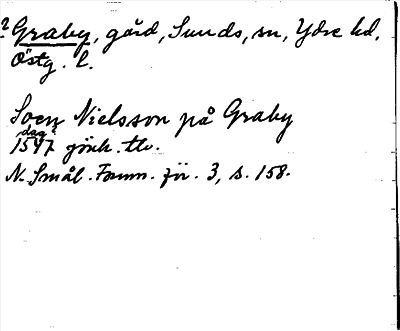 ? Graby, gård, Sunds, sn, Ydre hd,
Östg. l.
Soen Nielsson på Graby
dag?
1547 gönk. tlv.
N. Smål. Fornm. för. 3, s. 158.